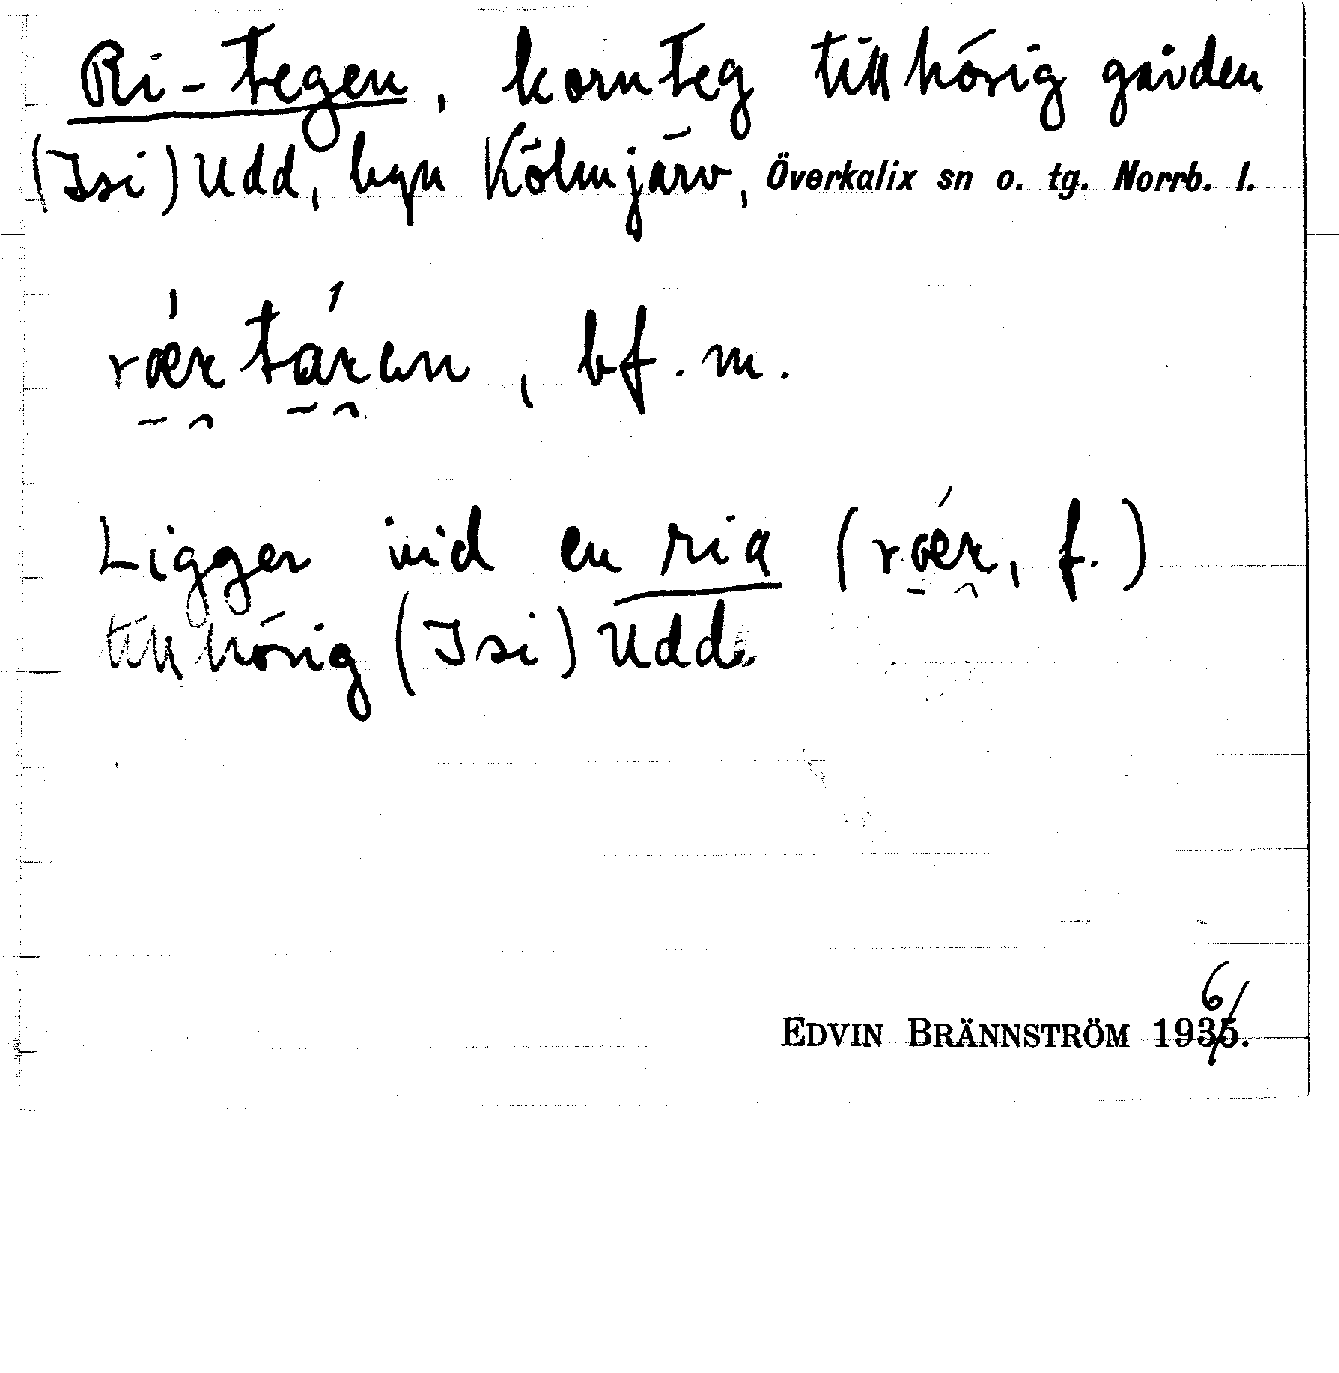 Ri-tegen, kornteg tillhörig gården
(Isi) Udd, byn Kölmjärv, Överkalix sn o. tg. Norrb. l.
bf. m.
Ligger vid en ria (rær, f.)
tillhörig (Isi) Udd.
EDVIN BRÄNNSTRÖM 1936.